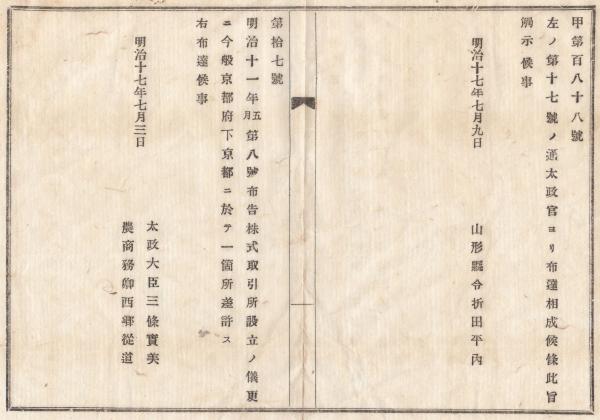 甲第百八十八號
左ノ第十七號ノ通太政官ヨリ布達相成候條此旨
觸示候事
明治十七年七月九日
山形縣令折田平內
第拾七號
明治十一年五月第八號布告株式取引所設立ノ儀更
ニ今般京都府下京都ニ於テ一箇所差許ス
右布達候事
明治十七年七月三日
太政大臣三條實美
農商務卿西鄕從道